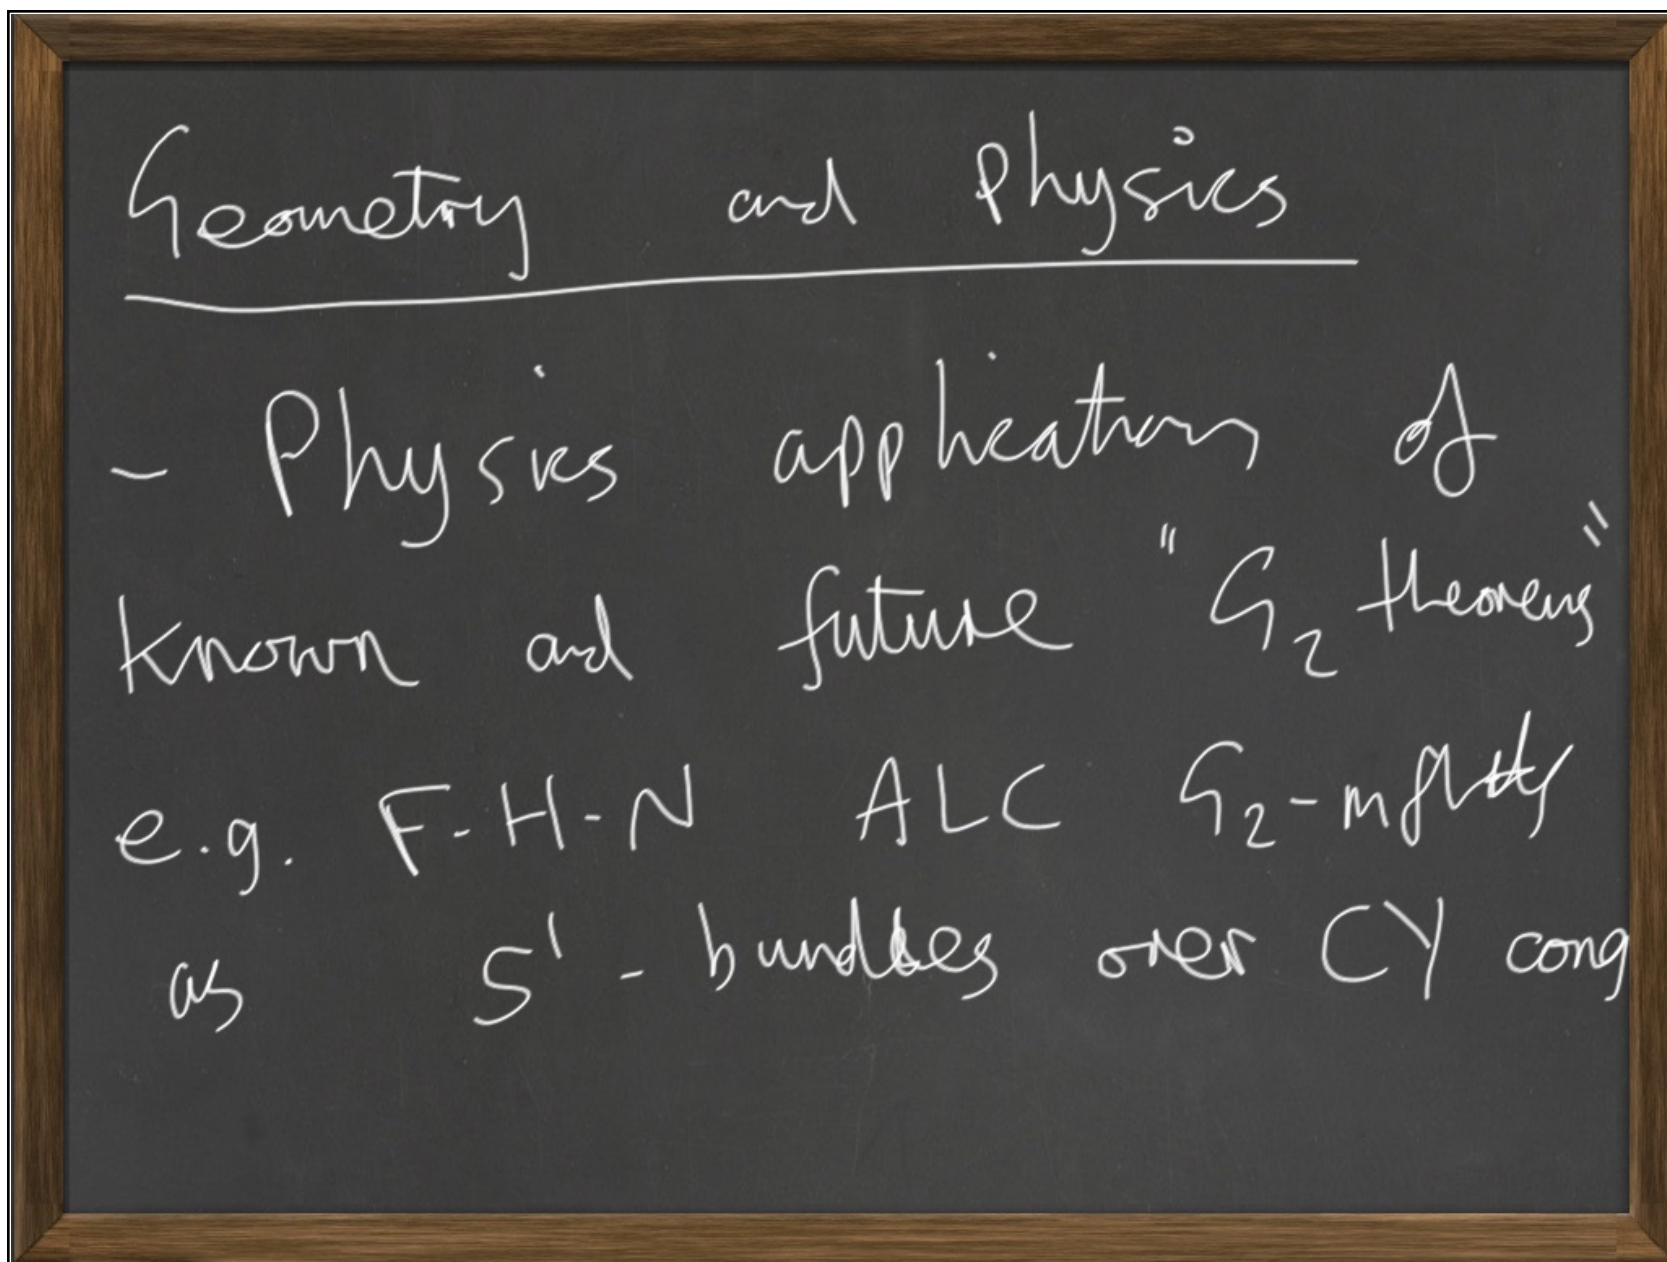 Geometry and Physics
- Physics applications of
known and future "G₂ theorems"
e.g. F-H-N ALC G₂-mflds
as S¹-bundles over CY cones